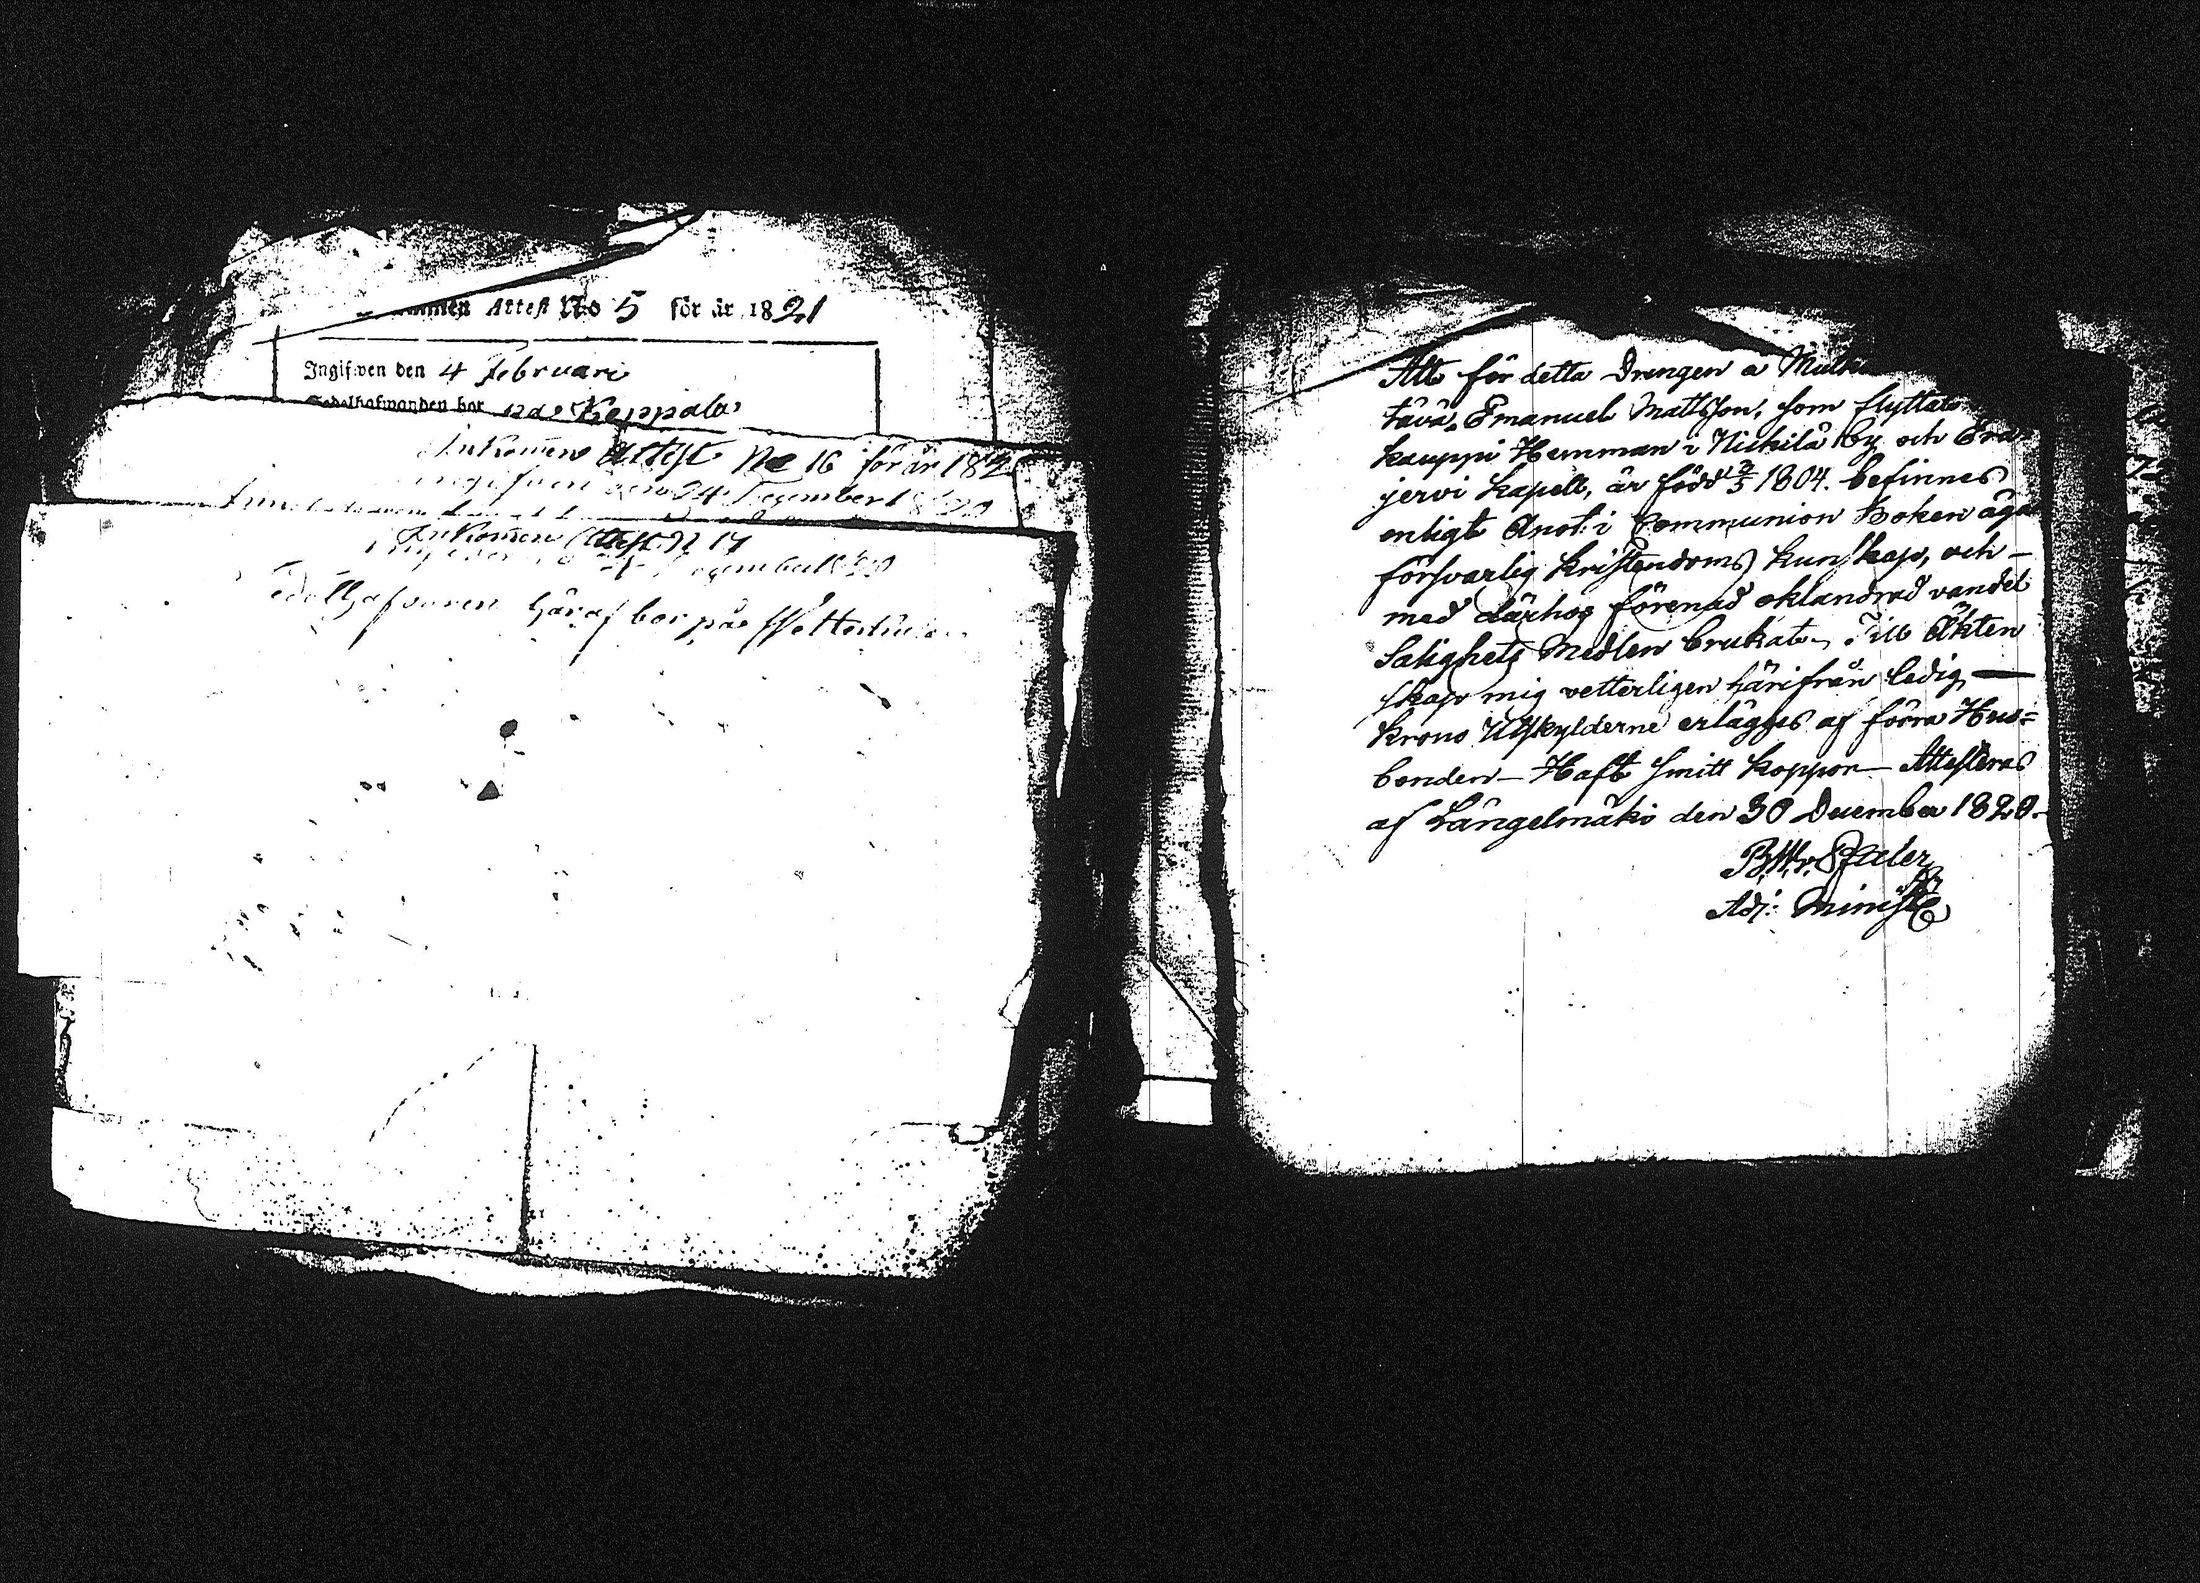 Attest No 5 för år 1821
Ingifven den 4 Februari
Sedelhafvanden bor på Keppala
Inkommen Attest No 16 för år 182
ingifven den 24 December 1820
Inkommen Attest N 17
December 1820
Sedelhafvaren häraf bor på
Att för detta Drengen a
Emanuel Mattsson, som flyttar
kauppi Hemman i Nickilä by och
jervi Kapell, är född 1804. befinnes
enligt Anot: i Communion Boken äga
försvarlig Kristendoms kunskap, och –
med därhos förenad oklandrad vandel
Salighets Medlen brukat. Till Äkten
skap mig vetterligen härifrån ledig, —
Krono Utskylderne erlägges af förra Hus=
bonden – Haft Smitt koppor – Attesteras
af Längelmäki den 30 December 1820.
Adj: Minist